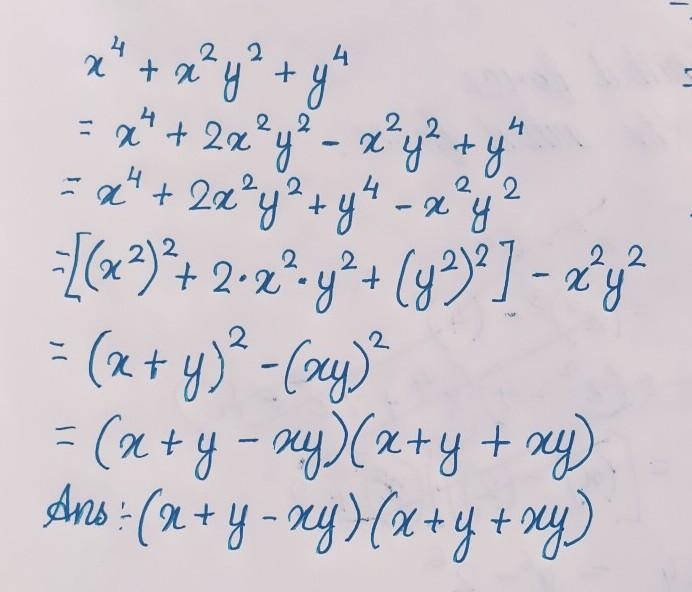 x⁴ + x²y² + y⁴
= x⁴ + 2x²y² - x²y² + y⁴
= x⁴ + 2x²y² + y⁴ - x²y²
=[(x²)² + 2·x²·y² + (y²)²] - x²y²
= (x + y)² - (xy)²
= (x + y - xy)(x + y + xy)
Ans:- (x + y - xy)(x + y + xy)